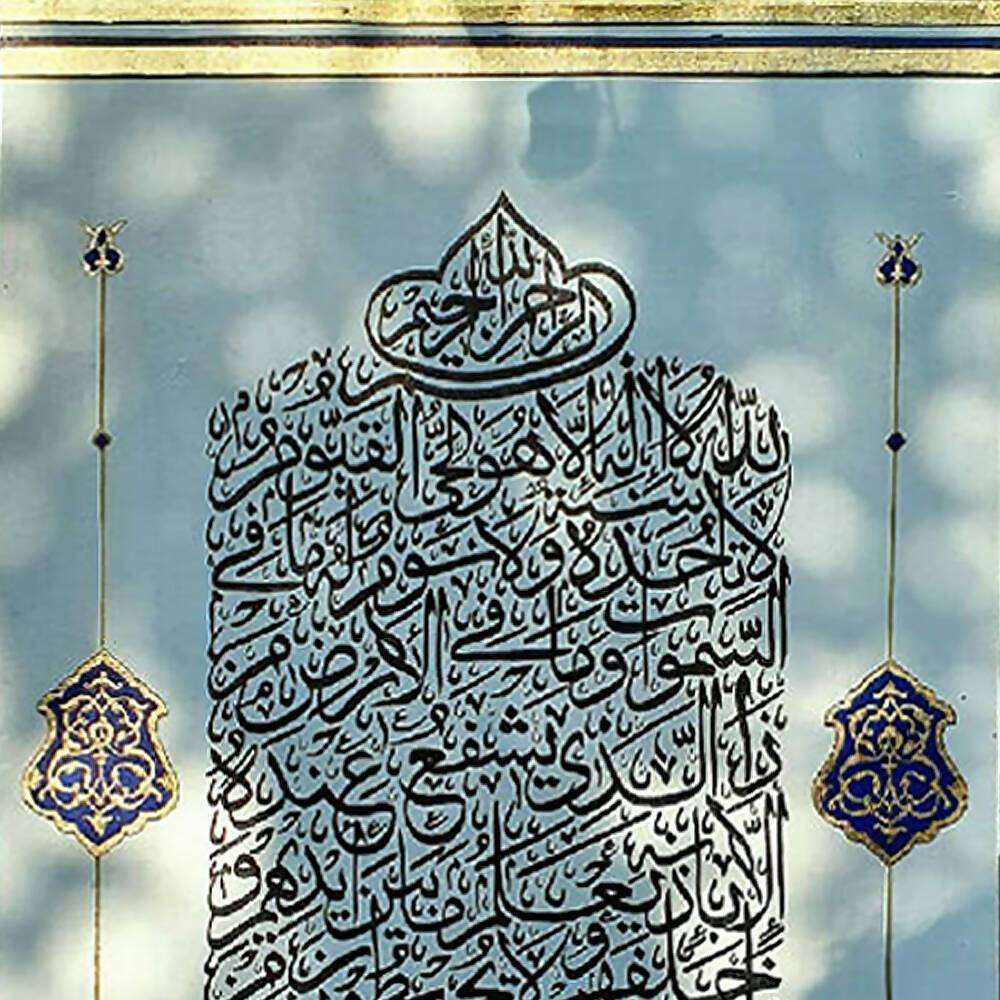 بسم الله الرحمن الرحيم
الله لا إله إلا هو الحي القيوم
لا تأخذه سنة ولا نوم له ما في
السموات وما في الأرض من
ذا الذي يشفع عنده
إلا بإذنه يعلم ما بين أيديهم و